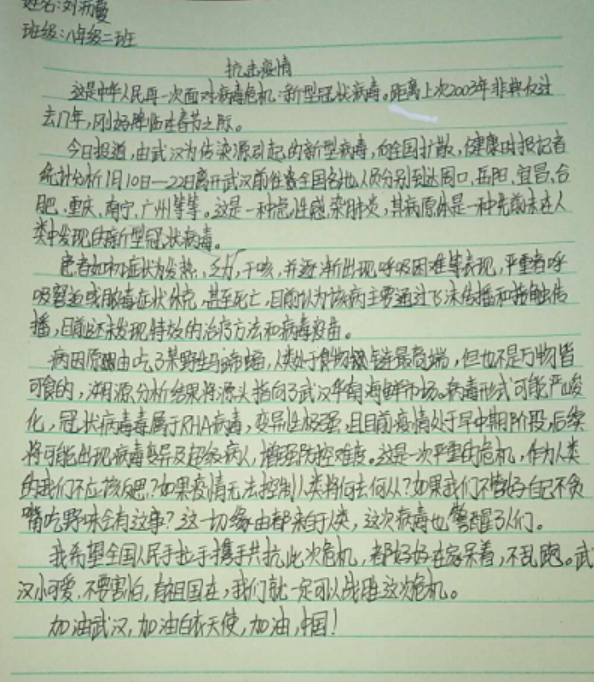 姓名:刘
班级:八年级二班
抗击疫情
这是中华人民再一次面对病毒危机:新型冠状病毒。距离上次2003年非典仅过
去17年,刚好降临在春节之际。
今日报道,由武汉为传染源引起的新型病毒,向全国扩散,健康时报记者
统计分析1月10日—22日离开武汉前往全国各地人员分别到达周口、岳阳、宜昌、合
肥、重庆、南宁、广州等等。这是一种急性感染肺炎,其病原体是一种先前未在人
类中发现的新型冠状病毒。
患者如初症状为发热,乏力,干咳,并逐渐出现呼吸困难等表现,严重者呼
吸窘迫或脓毒症状休克,甚至死亡,目前认为该病主要通过飞沫传播和接触传
播,目前还未发现特效的治疗方法和病毒疫苗。
病因原由吃了某野生蝙蝠,人类处于食物链最高端,但也不是万物皆
可食的,溯源分析结果将源头指向了武汉华南海鲜市场。病毒形式可能严峻
化,冠状病毒毒属于RHA病毒,变异性极强,且目前疫情处于早中期阶段,后续
将可能出现病毒变异及超级病人,增强防控难度。这是一次严重的危机,作为人类
的我们不应该反思?如果疫情无法控制人类将何去何从?如果我们不管好自己不贪
嘴吃野味会有这事?这一切缘由都来自人类,这次病毒也警醒了人们。
我希望全国人民手拉手携手共抗此次危机,都好好在家呆着,不乱跑。武
汉小可爱,不要害怕,有祖国在,我们就一定可以战胜这次危机。
加油武汉,加油白衣天使,加油,中国!